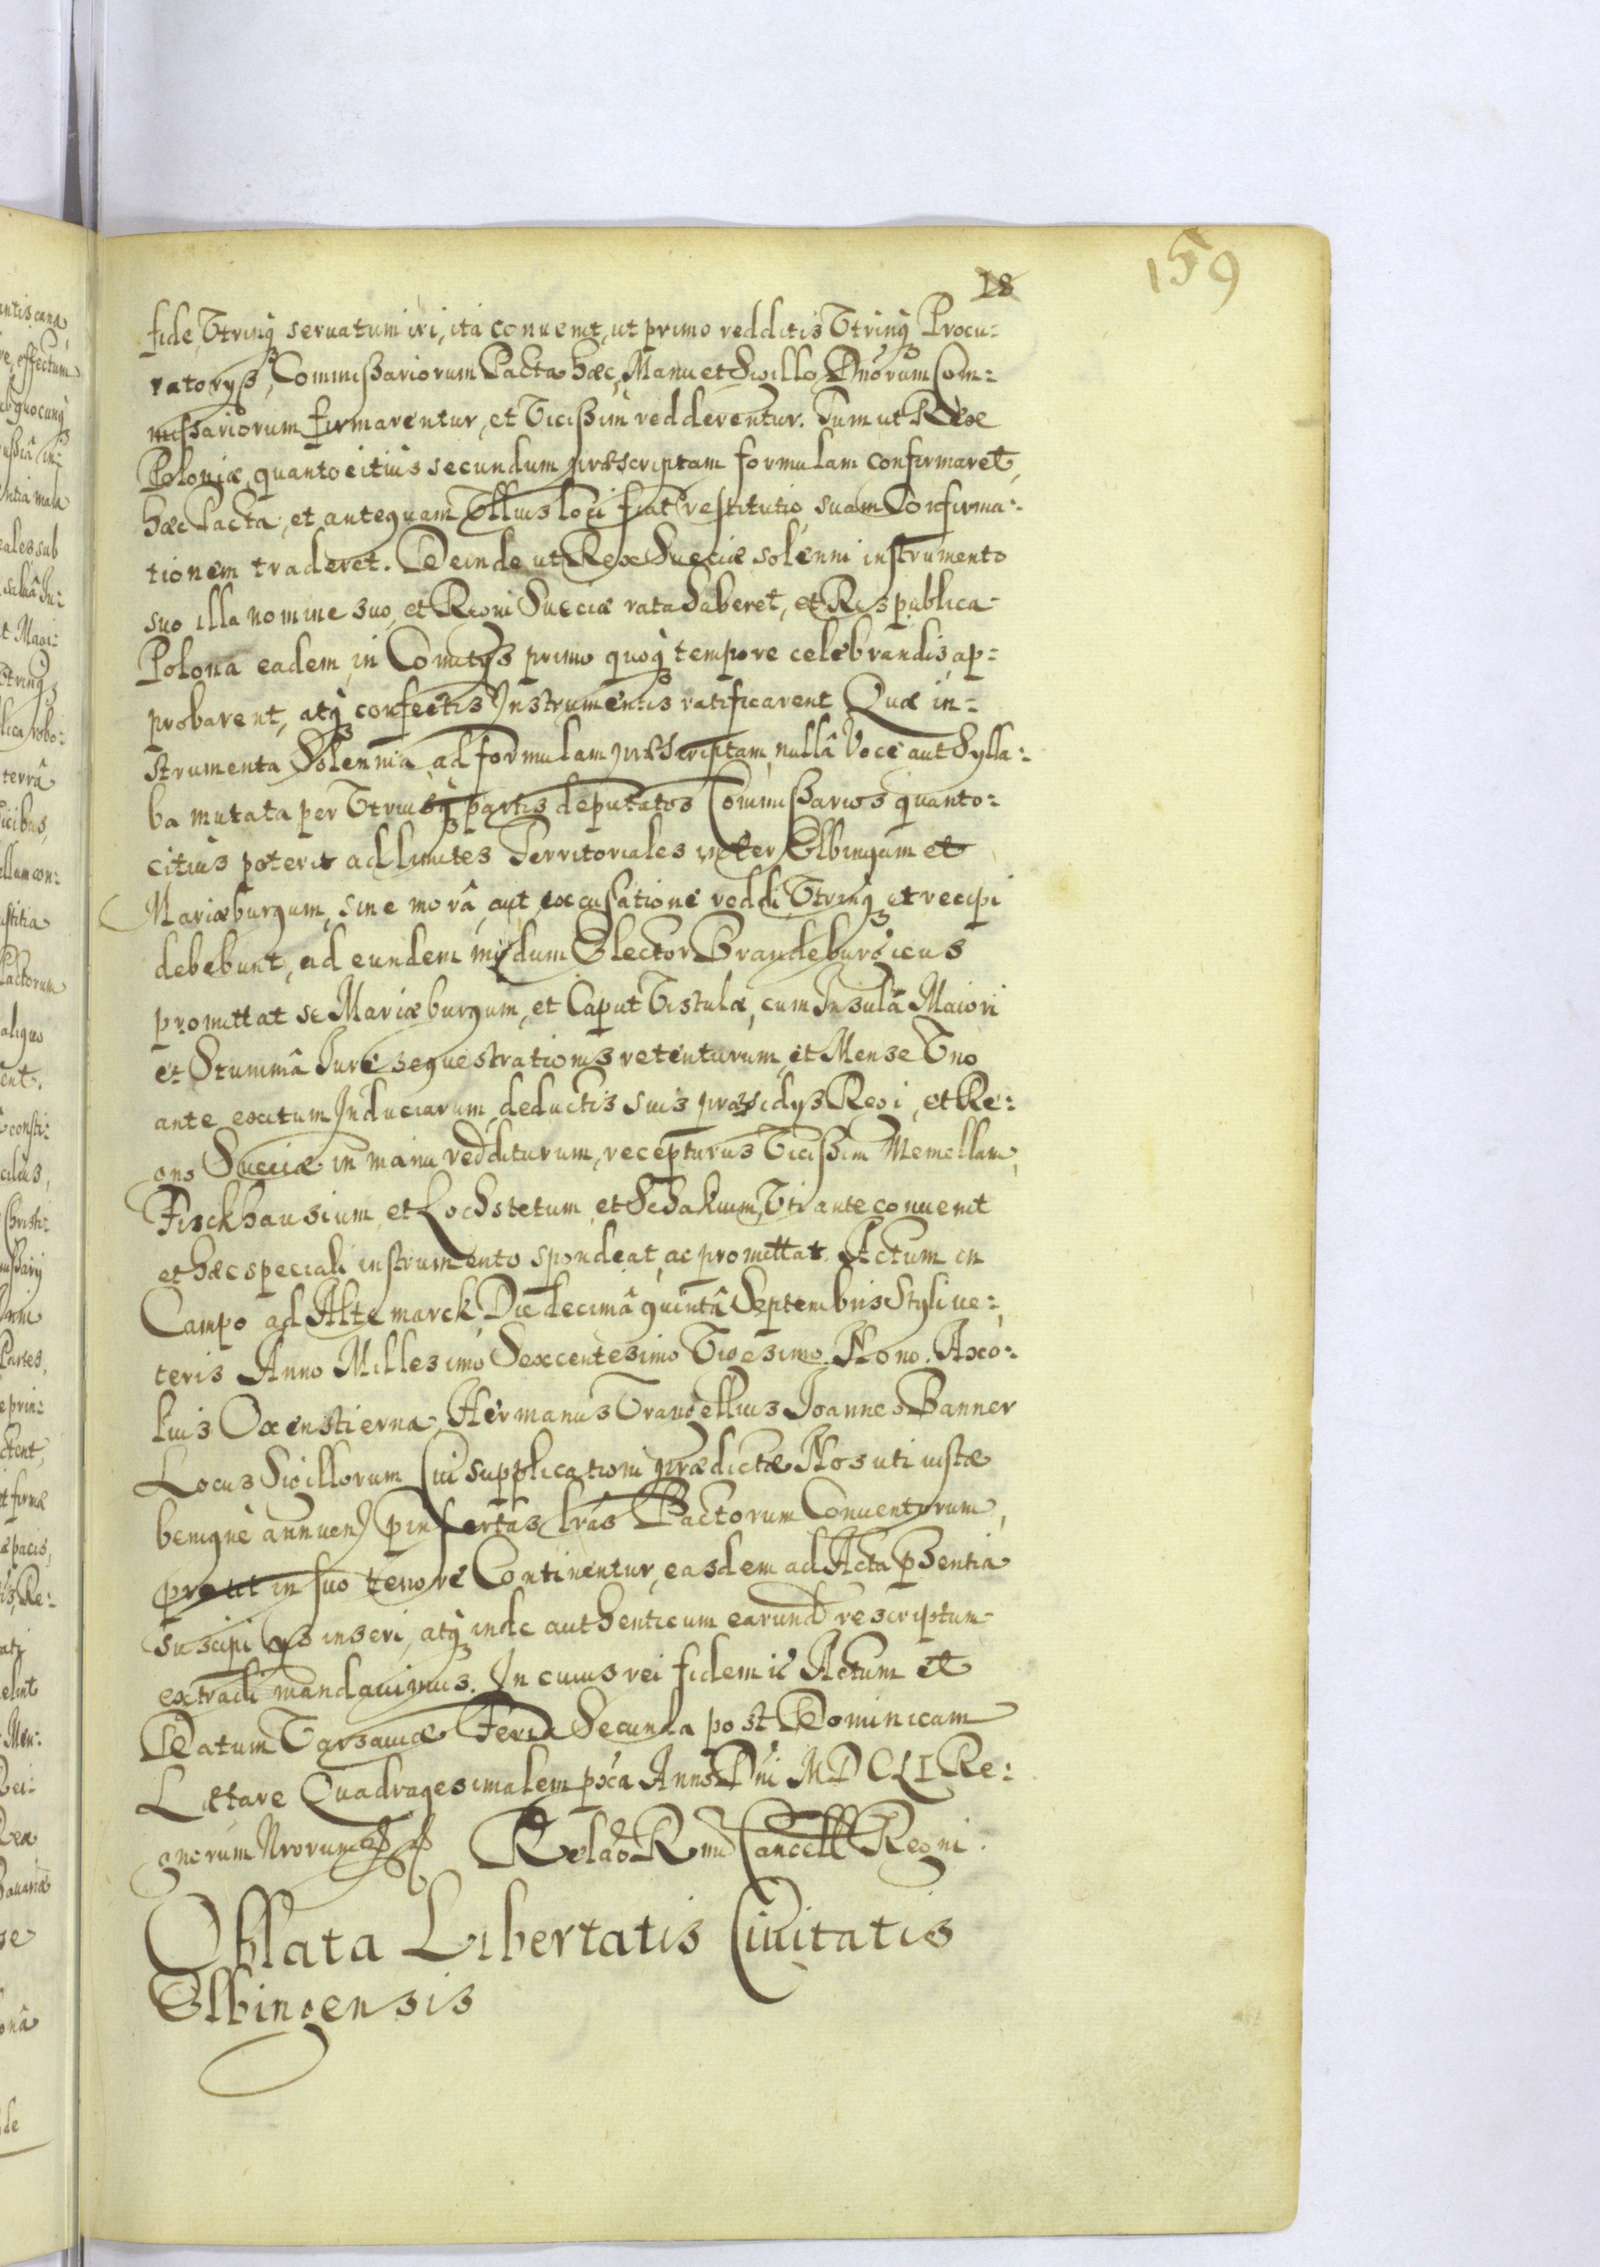 159
18
fide Utrinq̃ seruatum iri, ita conuenit, ut primo redditis Utrinq̃ Procu-
ratorijs, Commißariorum Pacta hæc, Manu et Sigillo Dnorum Com-
mißariorum firmarentur, et Vicißim redderentur. Tum ut Rex
Poloniæ, quantocitius secundum præscriptam formulam confirmaret
hæc Pacta, et antequam Ullius loci fiat restitutio, suam Confirma-
tionem traderet. Deinde ut Rex Sueciæ solenni instrumento
suo illa nomine suo, et Regni Sueciæ rata haberet, et Respublica
Polona eadem, in Comitijs primo quoq̃ tempore celebrandis, ap-
probarent, atq̃ confectis Instrumentis ratificarent Quæ in-
strumenta Solennia ad formulam præscriptam, nullâ Voce aut Sylla-
ba mutata per Utriusq̃ partis deputatos Commißarios quanto-
citius poterit ad limites Territoriales inter Elbingam et
Mariæburgum, sine morâ, aut excusatione reddi Utrinq̃ et recipi
debebunt, ad eundem modum Elector Brandeburgicus
promittat se Mariæburgum, et Caput Vistulæ, cum Insulâ Maiori
et Stummâ Jure sequestrationis retenturum, et Mense Uno
ante exitum Induciarum, deductis suis præsidijs Regi, et Re-
gno Sueciæ in manu redditurum, recepturus Vicißim Memellam,
Fisckhausium, et Lochstetum, et Schakium, Uti ante conuenit
et hæc speciali instrumento spondeat, ac promittat. Actum in
Campo ad Altemarck, Die decimâ quintâ Septembris Styli ue-
teris Anno Millesimo Sexcentesimo Vigesimo Nono. Axe-
lius Oxenstierna, Hermanus Vrangellius Joannes Banner
Locus Sigillorum Cui supplicationi prædictæ Nos uti iustæ
benignè annuen) pinsertas lrás Pactorum Conuentorum,
prout in suo tenore Continentur, easdem ad Acta pƷentia
suscipi ijs inseri, atq̃ inde authenticum earund rescriptum
extradi mandauimus. In cuius rei fidem ic Actum et
Datum Varsauiæ Feria Secunda post Dominicam
Lætare Quadragesimalem pxca Anno Dni MDCLI Re-
gnorum Nrorum
Relaõ Rmi Cancell Regni.
Oblata Libertatis Ciuitatis
Elbingensis